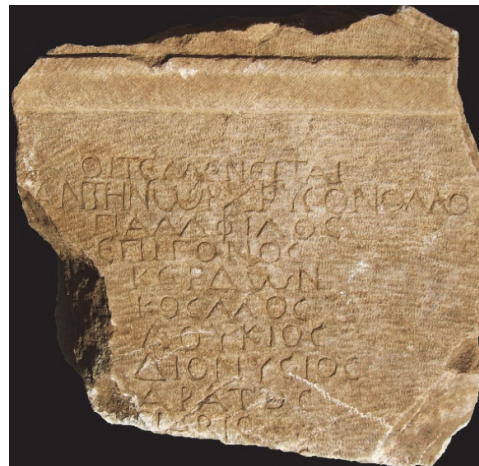 ΟΙΤΕΜΕΝΕΙΤΑΙ
ΑΝΤΗΝΩΡΧΡΥϹΟΝΟΜΟ
ΠΑΜΦΙΛΟϹ
ΕΠΙΓΟΝΟϹ
ΚΕΡΔΩΝ
ΚΟϹΜΟϹ
ΛΟΥΚΙΟϹ
ΔΙΟΝΥϹΙΟϹ
ΑΡΑΤΟϹ